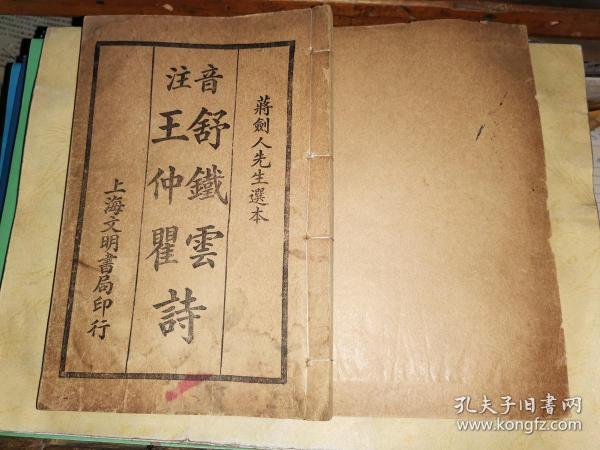 蔣劍人先生選本
音注
舒鐵雲
王仲瞿
詩
上海文明書局印行
孔夫子旧书网
www.kongfz.com